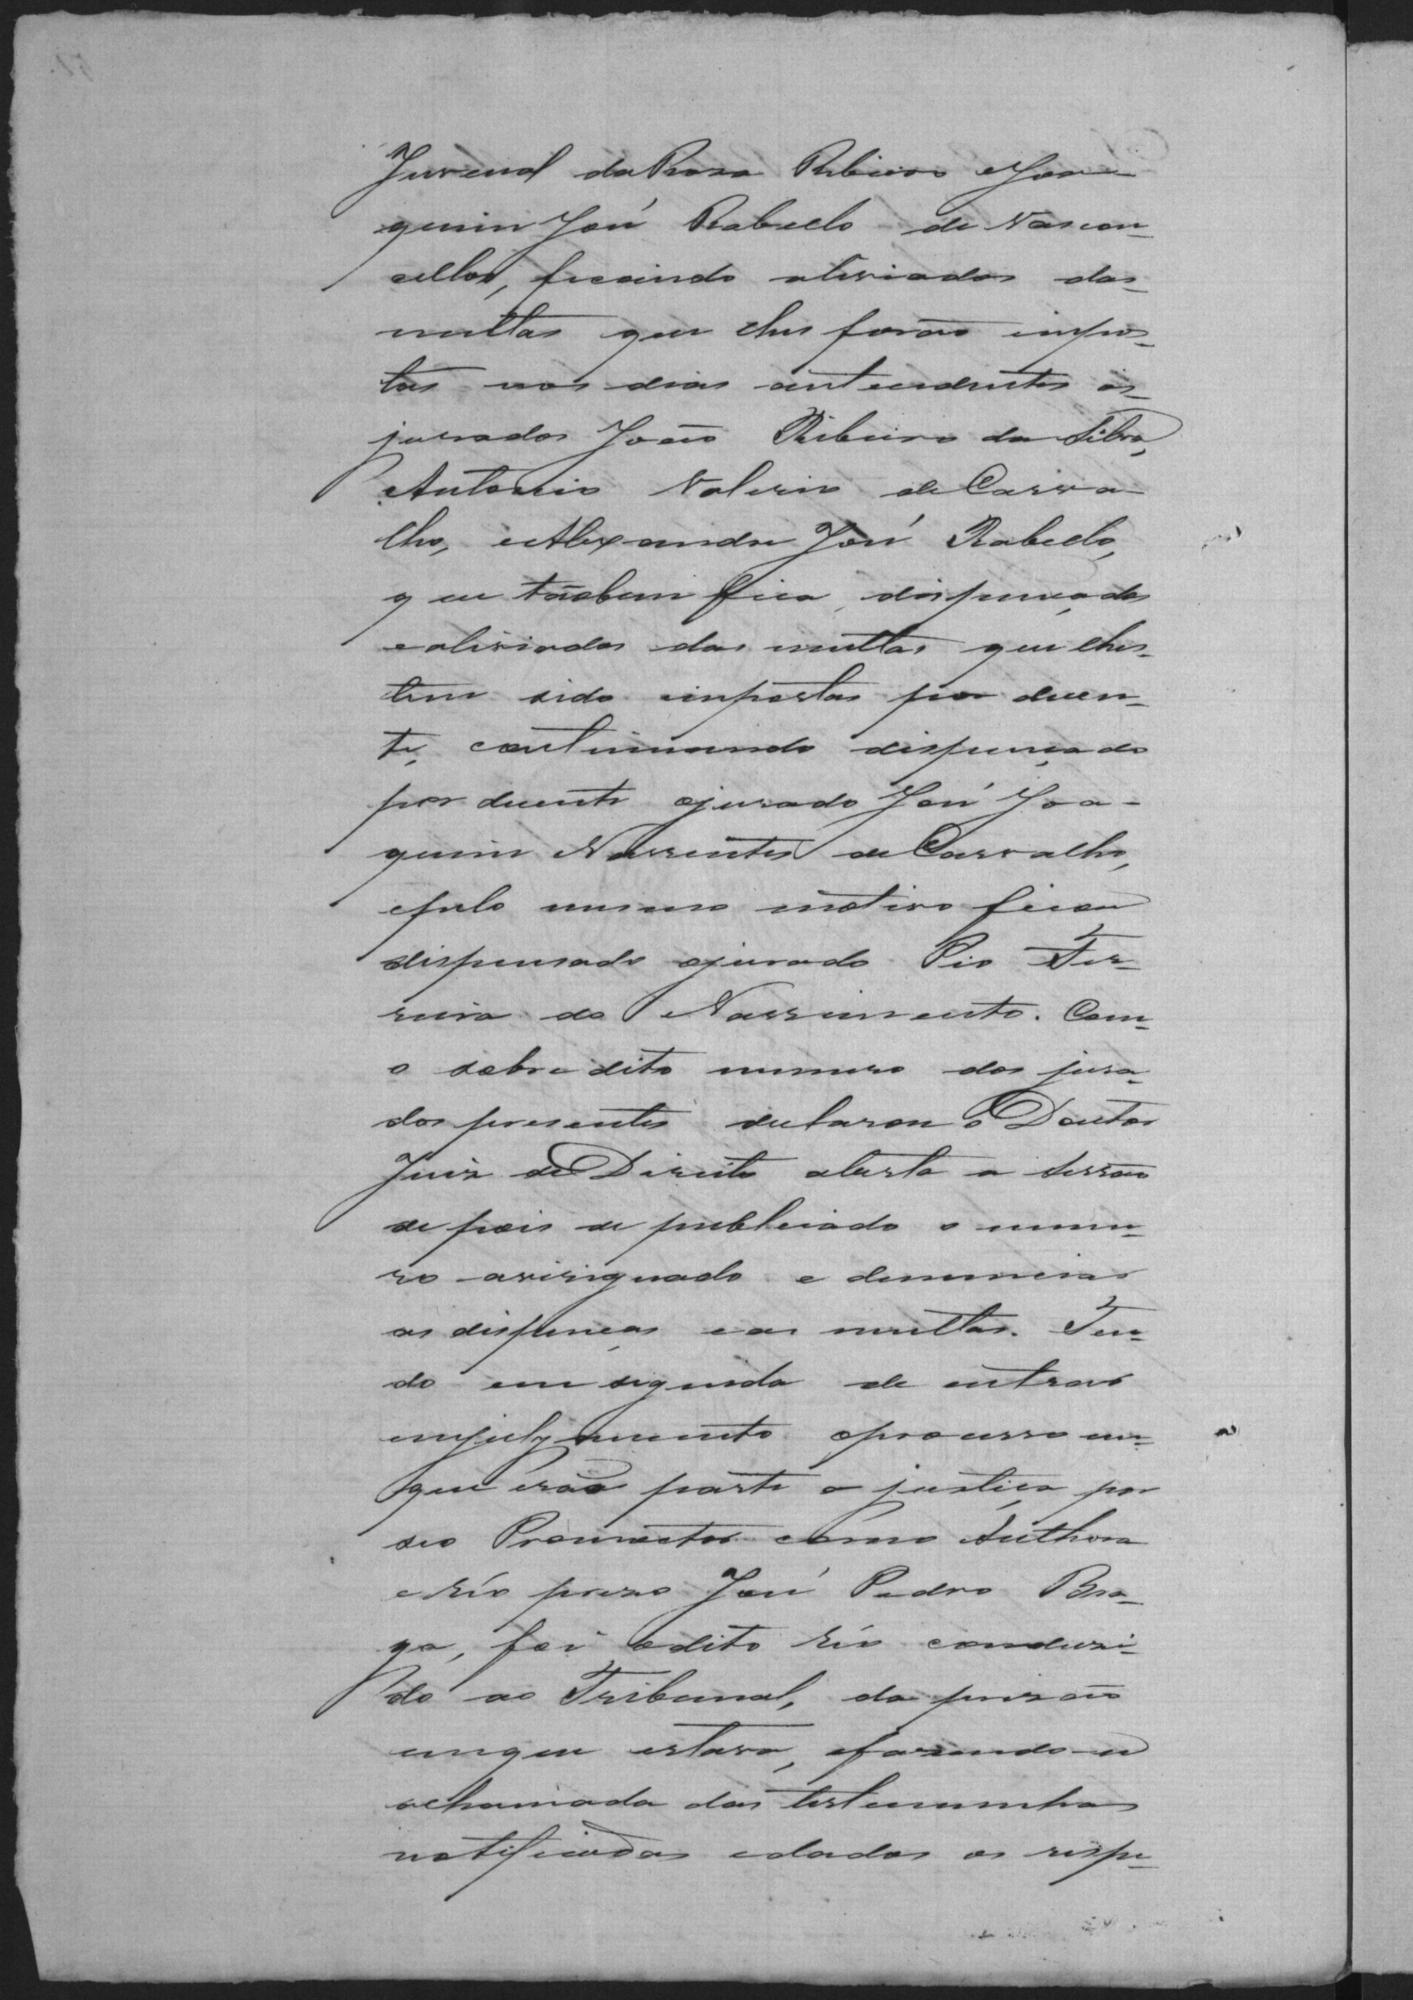 Juvenal da Roza Ribeiro e Joa-
quim José Rabello de Vascon-
cellos, ficando aliviados das
multas que lhes forão impos-
tas nos dias antecendentes os
jurados João Ribeiro da Silva,
Antonio Valerio de Carva-
lho, e Alexandre José Rabello,
que tãobem fica dispençados
e aliviados das multas que lhes
tem sido impostas por duen-
te, continuando dispençado
por duente o jurado José Joa-
quim Nassentes de Carvalho,
e pelo mesmo motivo ficou
dispensado o jurado Pio Fer-
reira do Nassimento. Com
o sobredito numero dos jura-
dos presentes declarou o Doutor
Juiz de Direito aberta a sessão
depois de publicado o nume-
ro aviriguado e denunciar
as dispenças e as multas. Ten-
do em seguida de entrar
em julgamento o processo em
que erão parte a justiça por
seo Promoctor como Authora
e Réo prezo José Pedro Bra-
ga, foi o dito Réo conduzi-
do ao Tribunal, da prizão
em que estava, e fazendo-se
a chamada das testemunhas
notificadas e dados os respe-